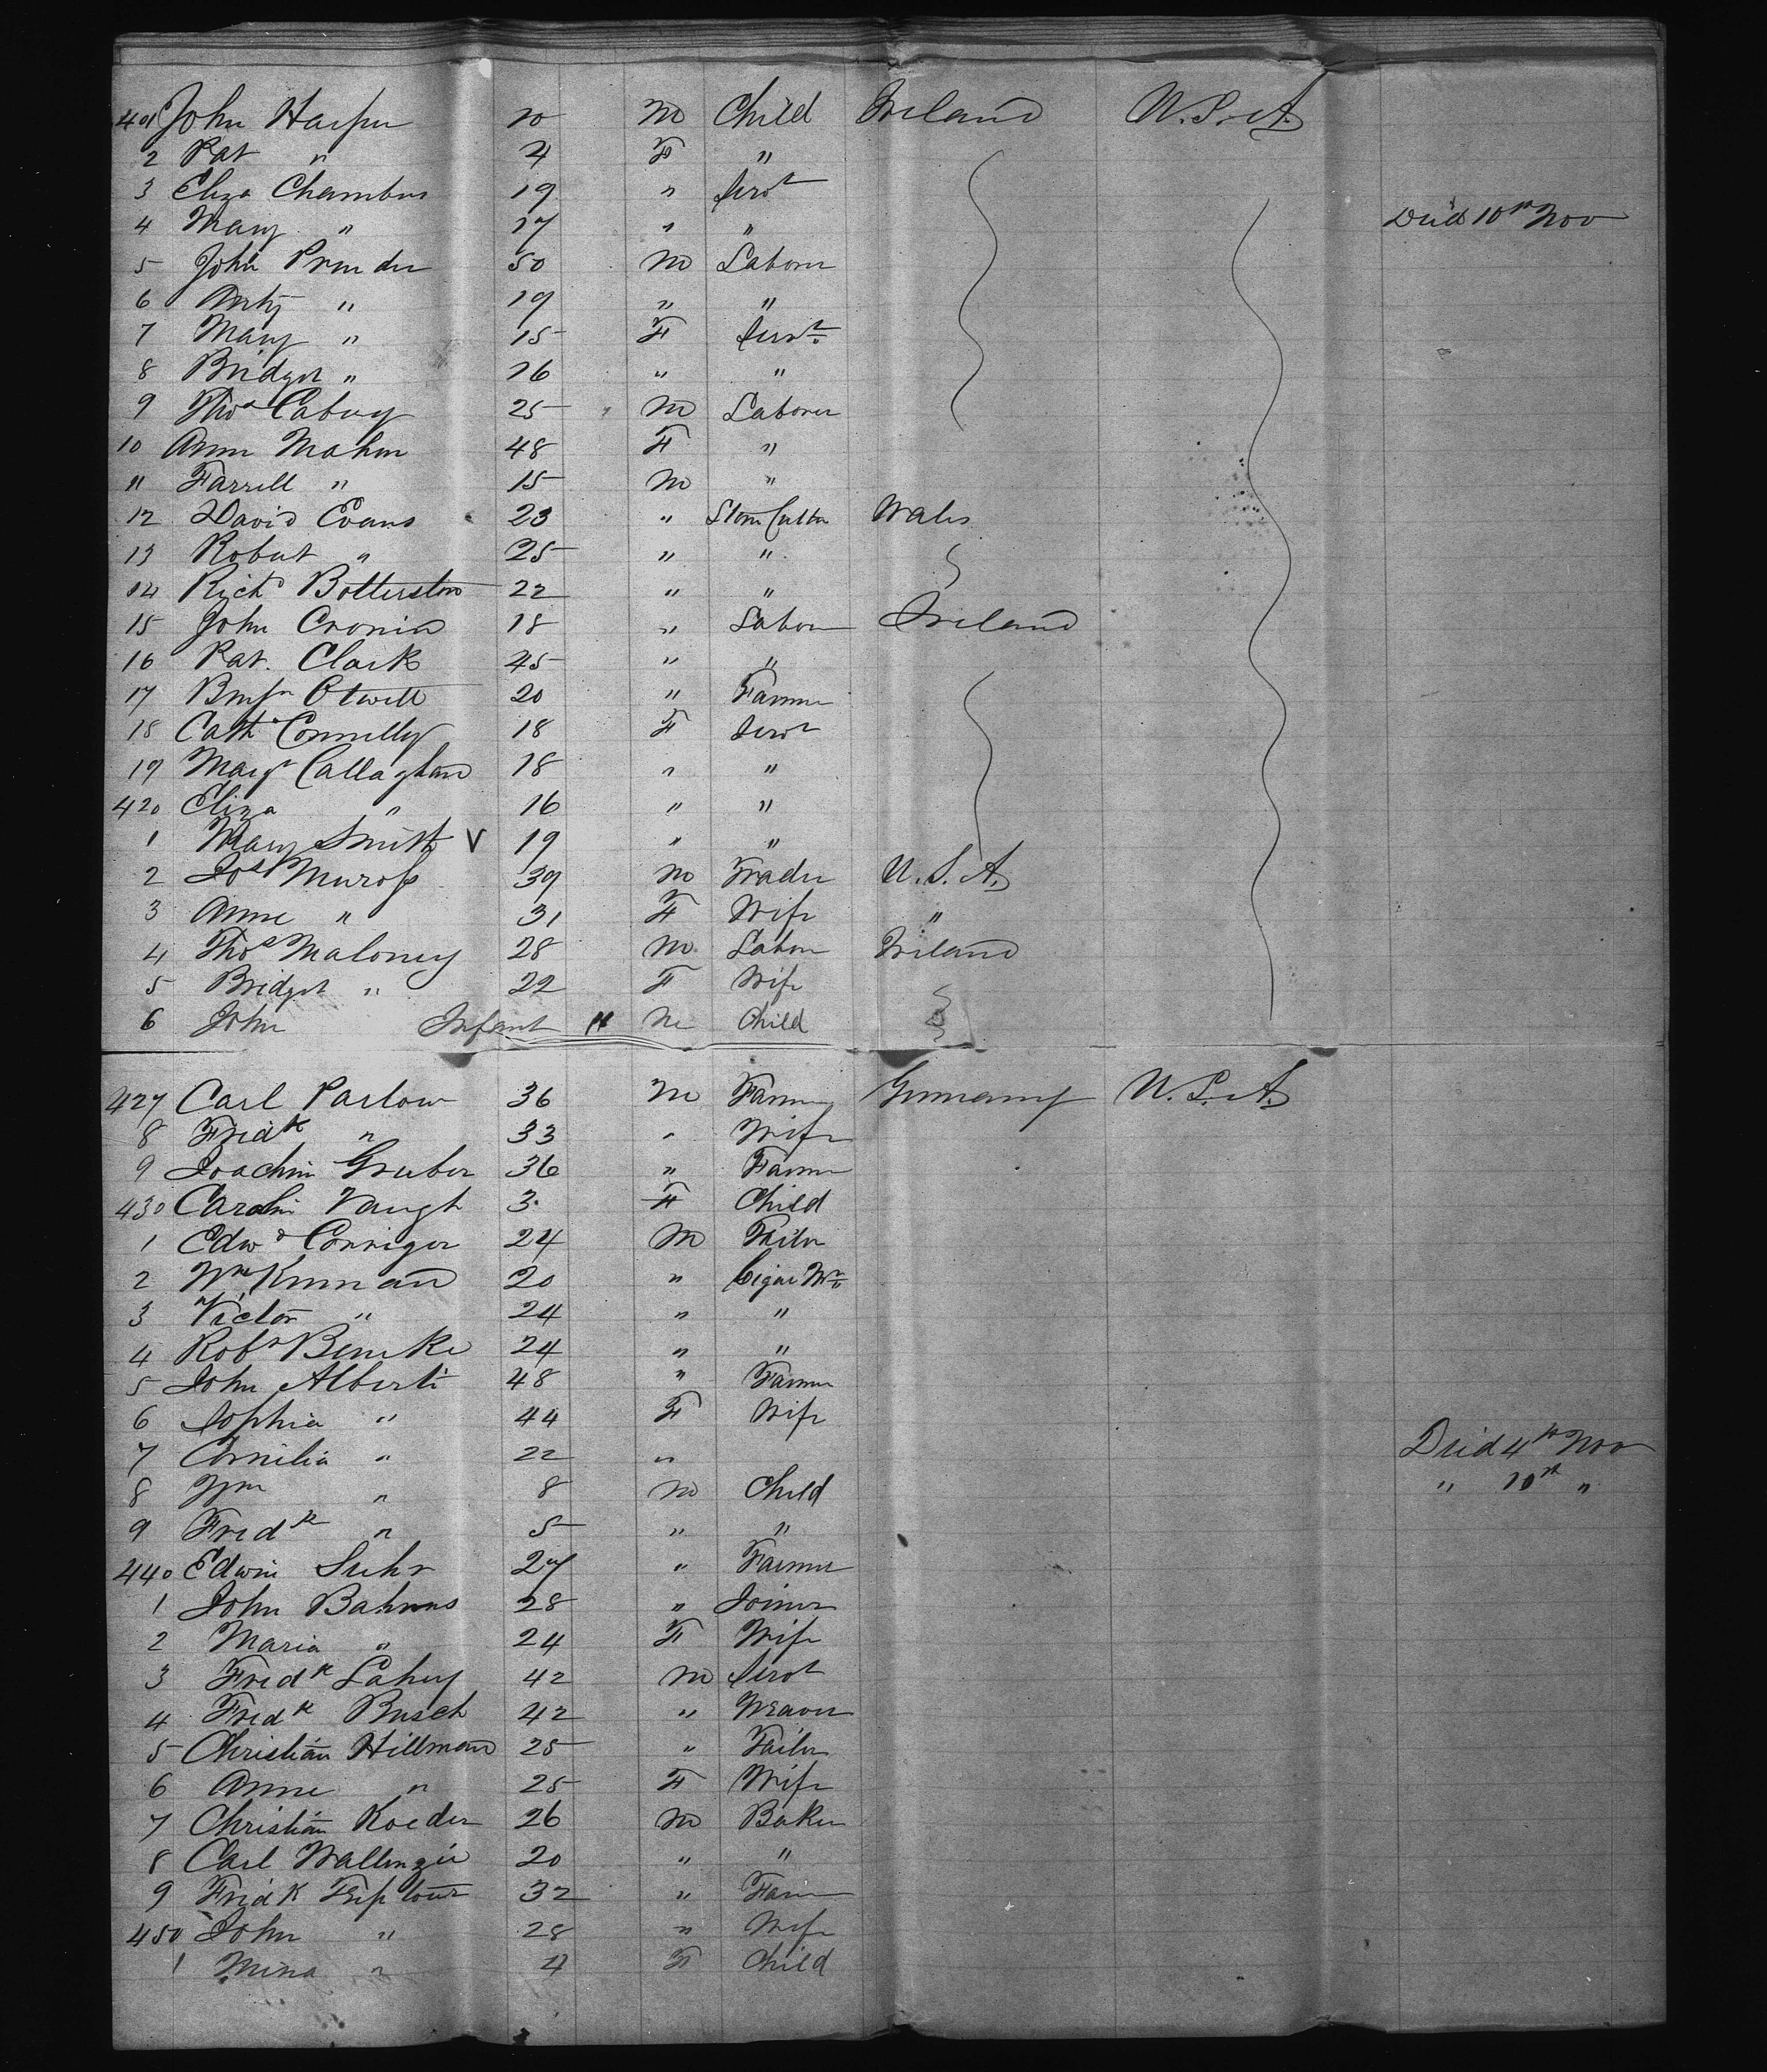 401 John Harper 10 M Child Ireland U.S.A.
2 Pat " 4 F "
3 Eliza Chambers 19 " Servt
4 Mary " 17 " " Died 10th Nov
5 John Prender 50 M Laborer
6 Anty " 19 " "
7 Mary " 15 F Servt
8 Bridget " 16 " "
9 Thos Cabery 25 M Laborer
10 Ann Mahon 48 F "
11 Farrell " 15 M "
12 David Evans 23 " Stone Cutter Wales
13 Robert " 25 " "
14 Richd Botterston 22 " "
15 John Cronin 18 " Labor Ireland
16 Pat. Clark 45 " "
17 Benjn Otwell 20 " Farmer
18 Cath Connelly 18 F Servt
19 Margt Callaghan 18 " "
420 Eliza " 16 " "
1 Mary Smith V 19 " "
2 Jos 39 M Trader U.S.A.
3 Anne " 31 F Wife "
4 Thos Maloney 28 M Labor Ireland
5 Bridget " 22 F Wife
6 John Infant M Child
427 Carl Parlow 36 M Farmer Germany U.S.A.
8 Fredk " 33 " Wife
9 Joachim Gruber 36 " Farmer
430 Carolin Vaugh 3 F Child
1 Edwd Corriger 24 M Tailor
2 Wm Kunnan 20 " Cigar Mr
3 Victor " 24 " "
4 Robt Beneke 24 " "
5 John Alberti 48 " Farmer
6 Sophia " 44 F Wife
7 Cornilia " 22 " Died 4th Nov
8 Wm " 8 M Child " 10th "
9 Fredk " 5 " "
440 Edwin Suhr 27 " Farmer
1 John Bahnns 28 " Joiner
2 Maria " 24 F Wife
3 Fredk Lahey 42 M Servt
4 Fredk Busch 42 " Weaver
5 Christian Hillman 25 " Tailor
6 Anne " 25 F Wife
7 Christian Roeder 26 M Baker
8 Carl Wallenzir 20 " "
9 Fredk 32 " Farm
450 John " 28 " Wife
1 Mina " 4 F Child